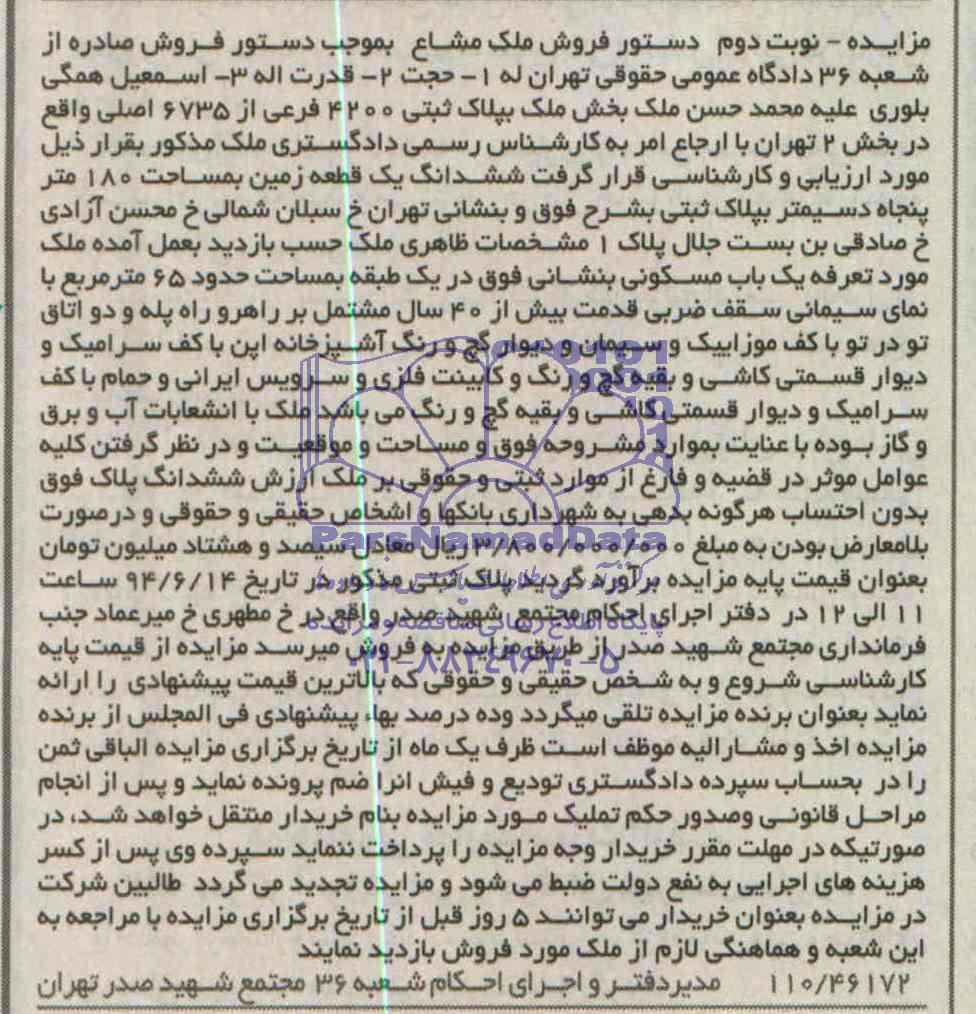 مزایده - نوبت دوم دستور فروش ملک مشاع بموجب دستور فروش صادره از
شعبه ۳۶ دادگاه عمومی حقوقی تهران له ۱- حجت ۲- قدرت اله ۳- اسمعیل همگی
بلوری علیه محمد حسن ملک بخش ملک بپلاک ثبتی ۴۲۰۰ فرعی از ۶۷۳۵ اصلی واقع
در بخش ۲ تهران با ارجاع امر به کارشناس رسمی دادگستری ملک مذکور بقرار ذیل
مورد ارزیابی و کارشناسی قرار گرفت ششدانگ یک قطعه زمین بمساحت ۱۸۰ متر
پنجاه دسیمتر بپلاک ثبتی بشرح فوق و بنشانی تهران خ سبلان شمالی خ محسن آزادی
خ صادقی بن بست جلال پلاک ۱ مشخصات ظاهری ملک حسب بازدید بعمل آمده ملک
مورد تعرفه یک باب مسکونی بنشانی فوق در یک طبقه بمساحت حدود ۶۵ مترمربع با
نمای سیمانی سقف ضربی قدمت بیش از ۴۰ سال مشتمل بر راهرو راه پله و دو اتاق
تو در تو با کف موزاییک و سیمان و دیوار گچ و رنگ آشپزخانه اپن با کف سرامیک و
دیوار قسمتی کاشی و بقیه گچ و رنگ و کابینت فلزی و سرویس ایرانی و حمام با کف
سرامیک و دیوار قسمتی کاشی و بقیه گچ و رنگ می باشد ملک با انشعابات آب و برق
و گاز بوده با عنایت بموارد مشروحه فوق و مساحت و موقعیت و در نظر گرفتن کلیه
عوامل موثر در قضیه و فارغ از موارد ثبتی و حقوقی بر ملک ارزش ششدانگ پلاک فوق
بدون احتساب هرگونه بدهی به شهرداری بانکها و اشخاص حقیقی و حقوقی و درصورت
بلامعارض بودن به مبلغ ۳/۸۰۰/۰۰۰/۰۰۰ ریال معادل سیصد و هشتاد میلیون تومان
بعنوان قیمت پایه مزایده برآورد گردید پلاک ثبتی مذکور در تاریخ ۹۴/۶/۱۴ ساعت
۱۱ الی ۱۲ در دفتر اجرای احکام مجتمع شهید صدر واقع در خ مطهری خ میرعماد جنب
فرمانداری مجتمع شهید صدر از طریق مزایده به فروش میرسد مزایده از قیمت پایه
کارشناسی شروع و به شخص حقیقی و حقوقی که بالاترین قیمت پیشنهادی را ارائه
نماید بعنوان برنده مزایده تلقی میگردد وده درصد بهاء پیشنهادی فی المجلس از برنده
مزایده اخذ و مشارالیه موظف است ظرف یک ماه از تاریخ برگزاری مزایده الباقی ثمن
را در بحساب سپرده دادگستری تودیع و فیش انرا ضم پرونده نماید و پس از انجام
مراحل قانونی وصدور حکم تملیک مورد مزایده بنام خریدار منتقل خواهد شد، در
صورتیکه در مهلت مقرر خریدار وجه مزایده را پرداخت ننماید سپرده وی پس از کسر
هزینه های اجرایی به نفع دولت ضبط می شود و مزایده تجدید می گردد طالبین شرکت
در مزایده بعنوان خریدار می توانند ۵ روز قبل از تاریخ برگزاری مزایده با مراجعه به
این شعبه و هماهنگی لازم از ملک مورد فروش بازدید نمایند
۱۱۰/۴۶۱۷۲ مدیردفتر و اجرای احکام شعبه ۳۶ مجتمع شهید صدر تهران
ParsNamadData
پایگاه اطلاع رسانی مناقصه و مزایده
۰۲۱-۸۸۳۴۹۶۷۰-۵